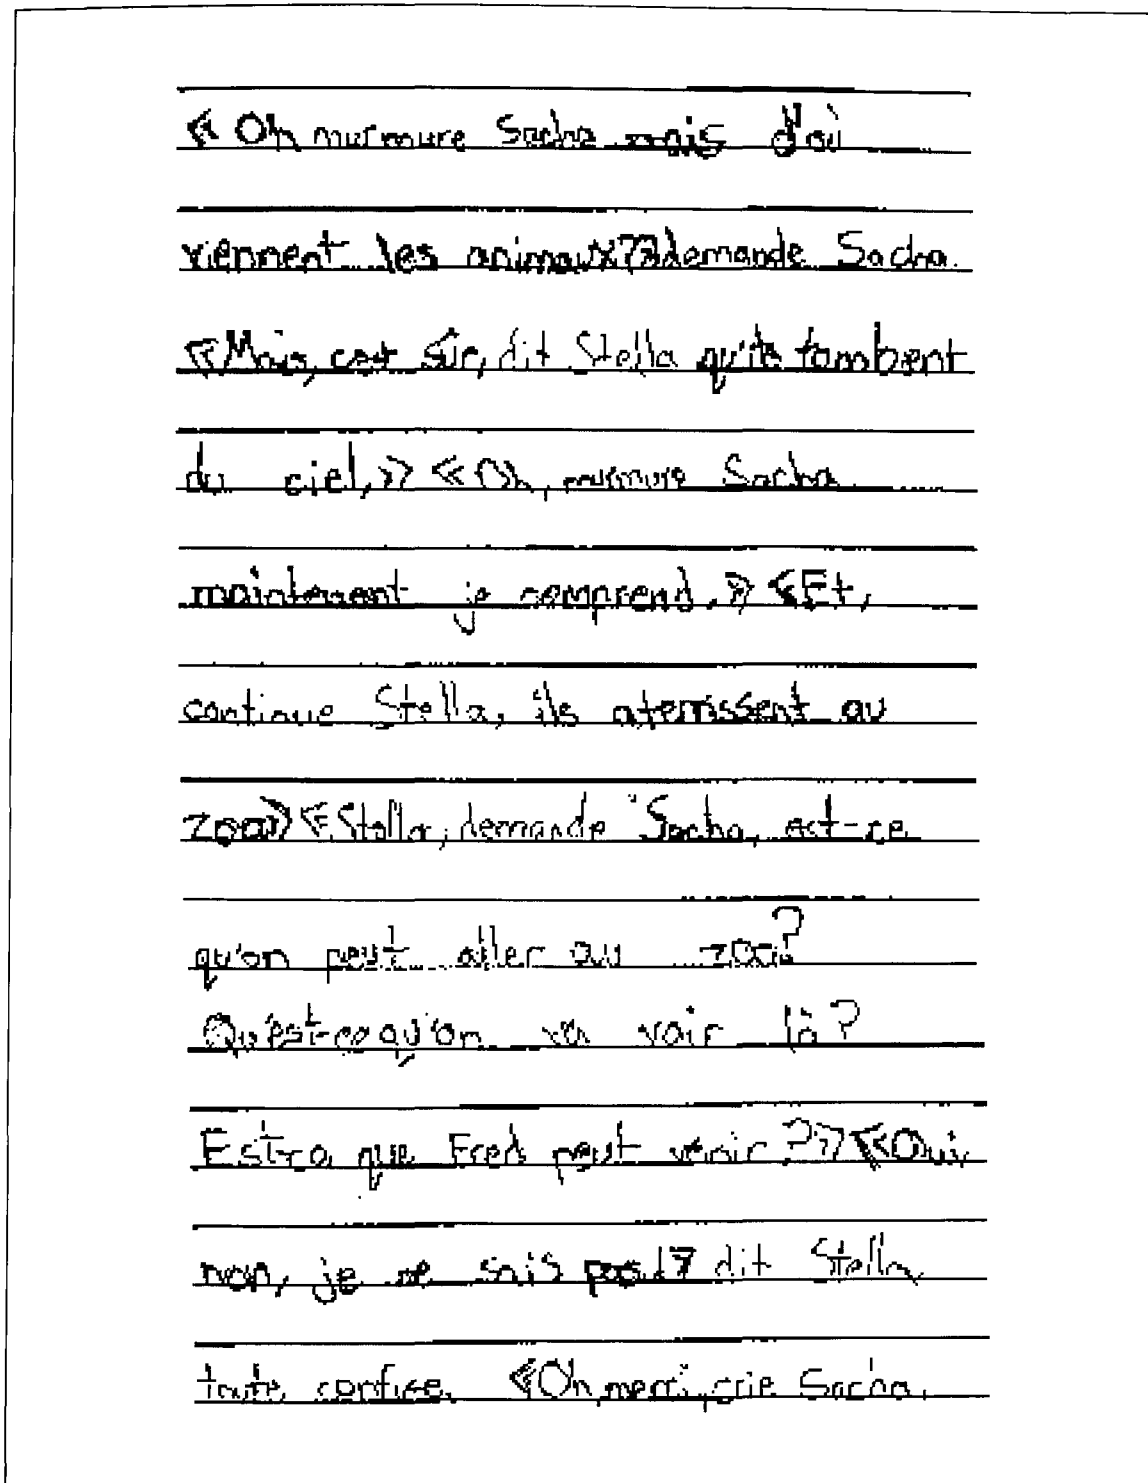 « Oh murmure Sacha mais d'où
viennent les animaux?» demande Sacha.
«Mais, c'est sûr, dit Stella qu'ils tombent
du ciel,» «Oh, murmure Sacha
maintenant je comprend.» «Et,
continue Stella, ils aterrissent au
zoo» «Stella, demande Sacha, est-ce
qu'on peut aller au zoo?
Qu'est-ce qu'on va voir là?
Est-ce que Fred peut venir?» «Oui,
non, je ne sais pas!» dit Stella
toute «Oh merci, crie Sacha,